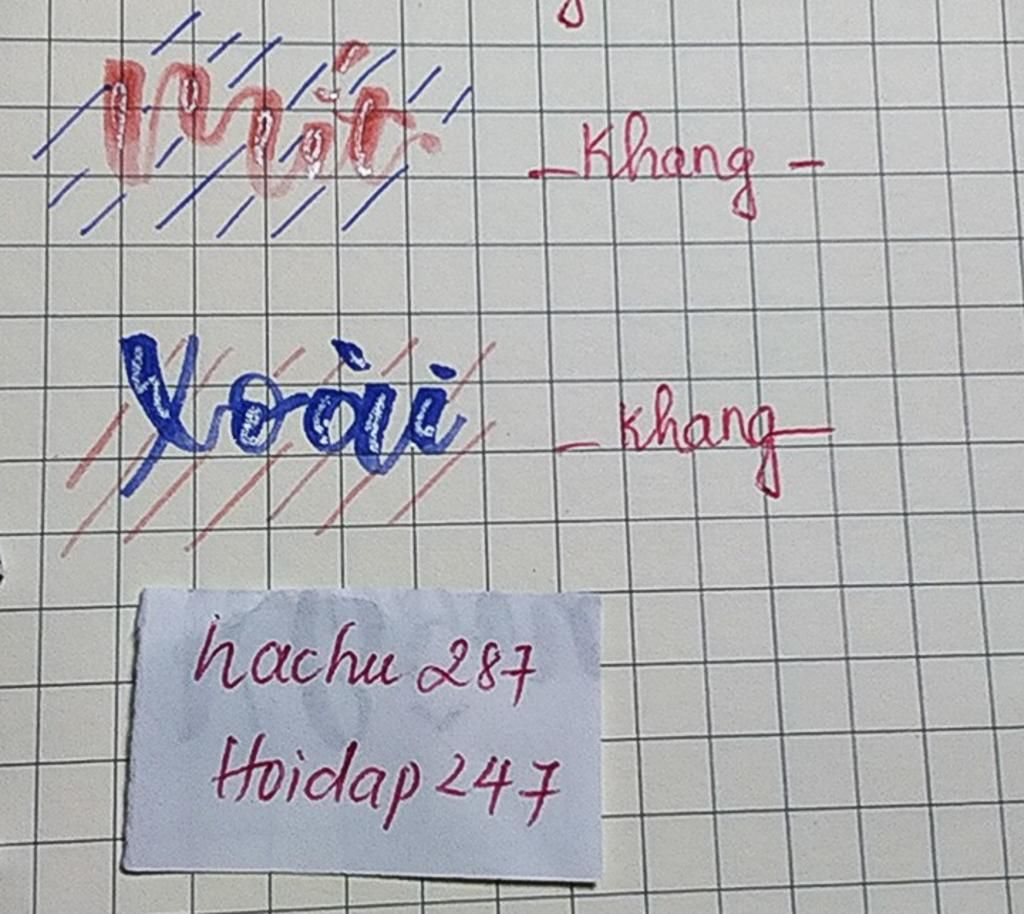 Mít
-Khang-
Xoài
-Khang-
hachu 287
Hoidap247